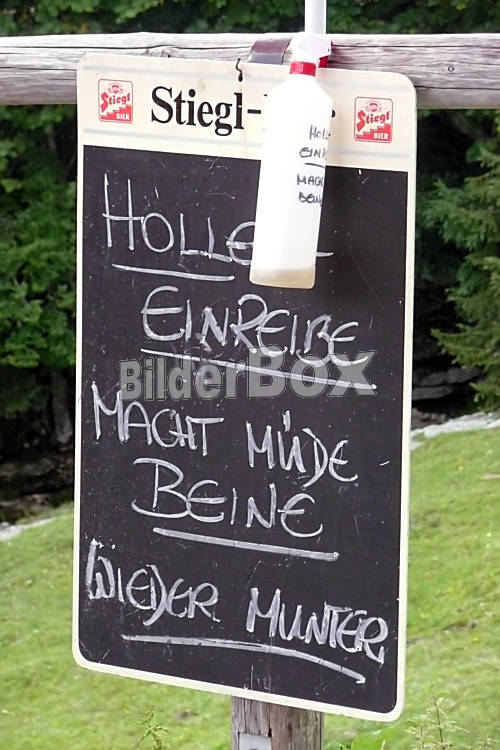 Stiegl BIER
Stiegl-
Stiegl BIER
HOLLE
EINREIBE
MACHT MÜDE
BEINE
WIEDER MUNTER
HOLL
EINR
MACH
BEIN
BilderBOX